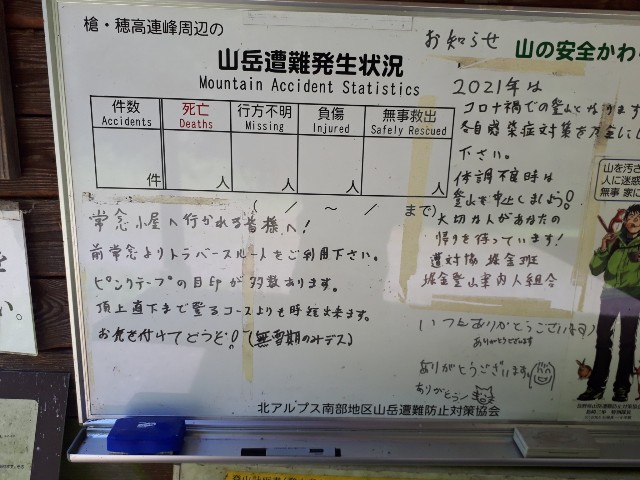 槍・穂高連峰周辺の
山岳遭難発生状況
Mountain Accident Statistics
件数 死亡 行方不明 負傷 無事救出
Accidents Deaths Missing Injured Safely Rescued
件 人 人 人 人
( / ~ / まで)
常念小屋へ行かれる皆様へ!
前常念よりトラバースルートをご利用下さい。
ピンクテープの目印が多数あります。
頂上直下まで登るコースよりも時短出来ます。
お気を付けてどうぞ!(無雪期のみデス)
お知らせ
山の安全かわ
2021年は
コロナ禍での登山となります
各自感染症対策を万全にし
下さい。
体調不良時は
登山を中止しましょう!
大切な人があなたの
帰りを待っています!
遭対協 堀金班
堀金登山案内人組合
いつもありがとうございます
ありがとうございます
ありがとうございます。
ありがとう
山を汚さ
人に迷惑
無事 家に
北アルプス南部地区山岳遭難防止対策協会
い。